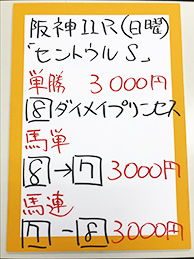 阪神11R(日曜)
「セントウルS」
単勝 3000円
8 ダイメイプリンセス
馬単
8→7 3000円
馬連
7-8 3000円